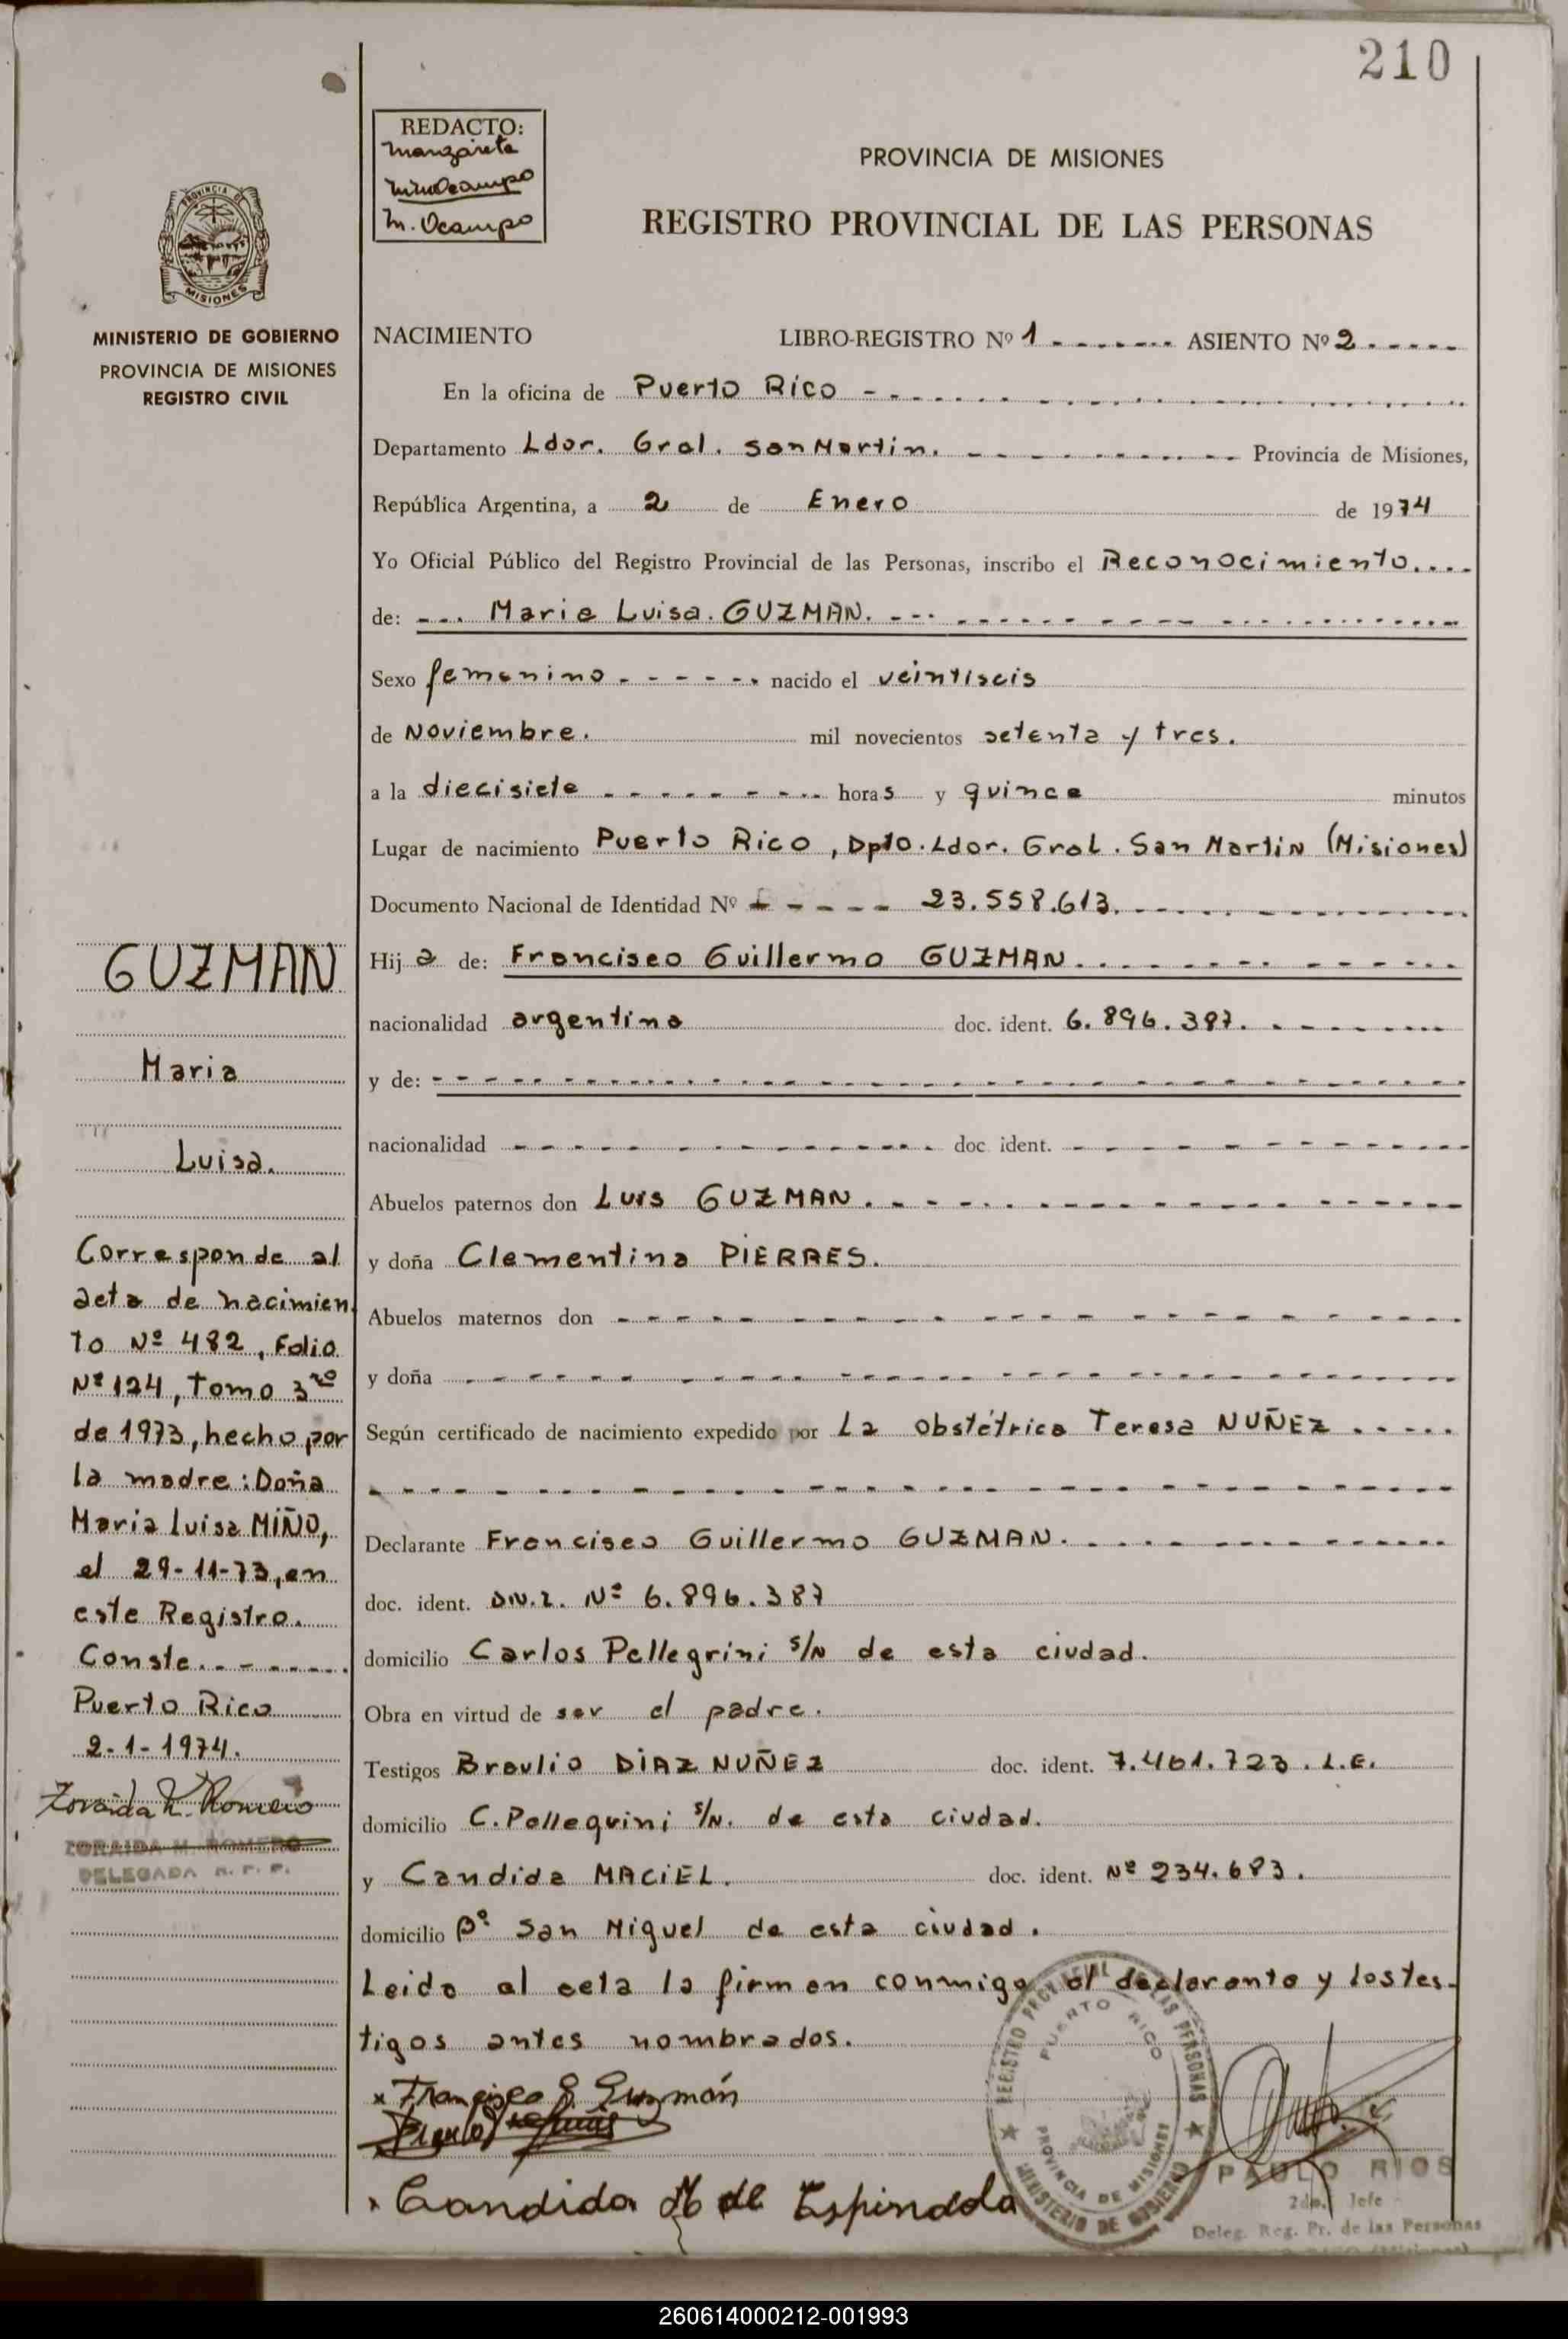 210
REDACTO:
Manzareta
M. Ocampo
PROVINCIA DE MISIONES
REGISTRO PROVINCIAL DE LAS PERSONAS
PROVINCIA DE
MISIONES
MINISTERIO DE GOBIERNO
PROVINCIA DE MISIONES
REGISTRO CIVIL
NACIMIENTO LIBRO-REGISTRO Nº 1 ASIENTO Nº 2
En la oficina de Puerto Rico
Departamento Ldor. Gral. San Martin. Provincia de Misiones,
República Argentina, a 2 de Enero de 1974
Yo Oficial Público del Registro Provincial de las Personas, inscribo el Reconocimiento
de: Maria Luisa. GUZMAN.
Sexo femenino nacido el veintiseis
de Noviembre. mil novecientos setenta y tres.
a la diecisiete horas y quince minutos
Lugar de nacimiento Puerto Rico, Dpto. Ldor. Gral. San Martin (Misiones)
Documento Nacional de Identidad Nº 23.558.613.
Hija de: Francisco Guillermo GUZMAN.
nacionalidad argentina doc. ident. 6.896.387.
y de:
nacionalidad doc. ident.
Abuelos paternos don Luis GUZMAN.
y doña Clementina PIERRES.
Abuelos maternos don
y doña
Según certificado de nacimiento expedido por La obstétrica Teresa NUÑEZ
Declarante Francisco Guillermo GUZMAN.
doc. ident. D.N.I. Nº 6.896.387
domicilio Carlos Pellegrini s/N de esta ciudad.
Obra en virtud de ser el padre.
Testigos Braulio DIAZ NUÑEZ doc. ident. 7.461.723. L.E.
domicilio C. Pellegrini s/N. de esta ciudad.
y Candida MACIEL. doc. ident. Nº 234.683.
domicilio Bº San Miguel de esta ciudad.
Leida el acta la firman conmigo el declarante y los tes-
tigos antes nombrados.
Francisco G Guzmán
Candida M de Espindola
GUZMAN
Maria
Luisa.
Corresponde al
acta de nacimien
to Nº 482, Folio
Nº 124, Tomo 3ro
de 1973, hecho por
la madre: Doña
Maria Luisa MIÑO,
el 29-11-73, en
este Registro.
Conste.
Puerto Rico
2-1-1974.
Zoraida M. Romero
ZORAIDA M. ROMERO
DELEGADA R. P. P.
REGISTRO PROVINCIAL DE LAS PERSONAS
PUERTO RICO
PROVINCIA DE MISIONES
MINISTERIO DE GOBIERNO
PAULO RIOS
2do. Jefe
Deleg. Reg. Pr. de las Personas
260614000212-001993